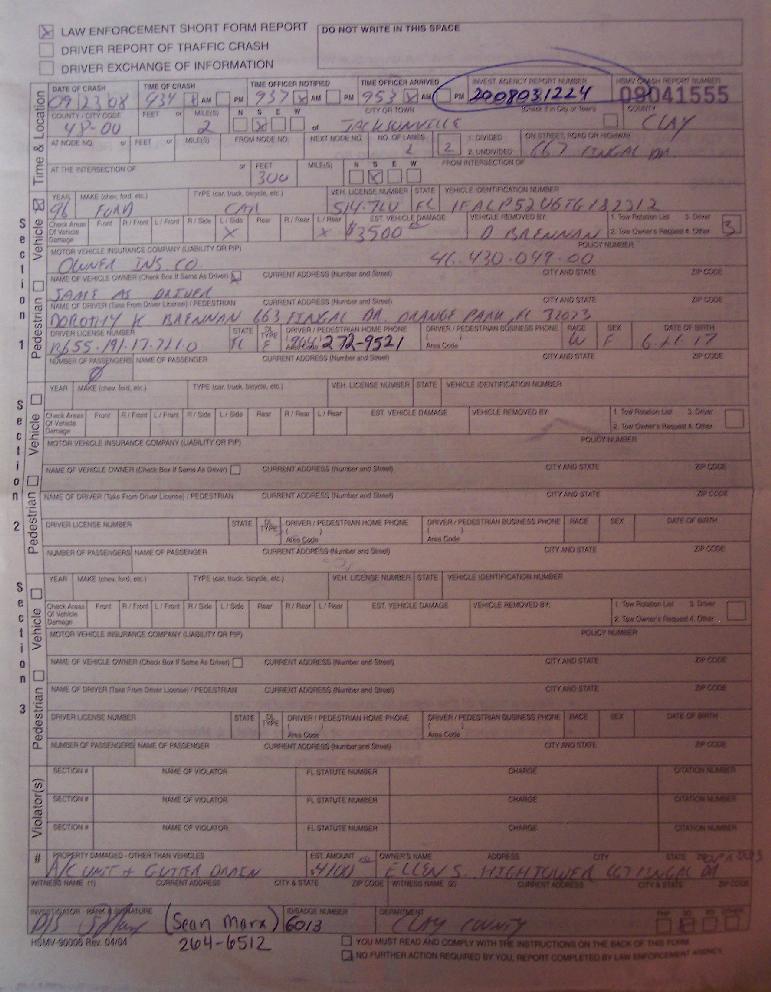 LAW ENFORCEMENT SHORT FORM REPORT
DRIVER REPORT OF TRAFFIC CRASH
DRIVER EXCHANGE OF INFORMATION
DO NOT WRITE IN THIS SPACE
Time & Location
DATE OF CRASH TIME OF CRASH AM PM TIME OFFICER NOTIFIED AM PM TIME OFFICER ARRIVED AM PM INVEST. AGENCY REPORT NUMBER HSMV CRASH REPORT NUMBER
09 23 08 934 X 937 X 953 X 2008031224 09041555
COUNTY / CITY CODE FEET or MILE(S) N S E W of CITY OR TOWN (Check if in City or Town) COUNTY
48-00 2 X JACKSONVILLE CLAY
AT NODE NO. or FEET or MILE(S) FROM NODE NO. NEXT NODE NO. NO. OF LANES 1. DIVIDED 2. UNDIVIDED ON STREET, ROAD OR HIGHWAY
2 2 667 FINGAL DR
AT THE INTERSECTION OF or FEET MILE(S) N S E W FROM INTERSECTION OF
300 X
Section 1
Vehicle X Pedestrian
YEAR MAKE (chev, ford, etc.) TYPE (car, truck, bicycle, etc.) VEH. LICENSE NUMBER STATE VEHICLE IDENTIFICATION NUMBER
96 FORD CAR FL
Check Areas Of Vehicle Damage Front R / Front L / Front R / Side L / Side Rear R / Rear L / Rear EST. VEHICLE DAMAGE VEHICLE REMOVED BY: 1. Tow Rotation List 3. Driver 2. Tow Owner's Request 4. Other
X X $3500 D BRENNAN 3
MOTOR VEHICLE INSURANCE COMPANY (LIABILITY OR PIP) POLICY NUMBER
OWNER INS CO 46-430-049-00
NAME OF VEHICLE OWNER (Check Box If Same As Driver) CURRENT ADDRESS (Number and Street) CITY AND STATE ZIP CODE
SAME AS DRIVER
NAME OF DRIVER (Take From Driver License) / PEDESTRIAN CURRENT ADDRESS (Number and Street) CITY AND STATE ZIP CODE
DOROTHY K BRENNAN 663 FINGAL DR ORANGE PARK, FL
DRIVER LICENSE NUMBER STATE DL TYPE DRIVER / PEDESTRIAN HOME PHONE DRIVER / PEDESTRIAN BUSINESS PHONE RACE SEX DATE OF BIRTH
FL E 272-9521 W F
Area Code Area Code
NUMBER OF PASSENGERS NAME OF PASSENGER CURRENT ADDRESS (Number and Street) CITY AND STATE ZIP CODE
Section 2
Vehicle Pedestrian
YEAR MAKE (chev, ford, etc.) TYPE (car, truck, bicycle, etc.) VEH. LICENSE NUMBER STATE VEHICLE IDENTIFICATION NUMBER
Check Areas Of Vehicle Damage Front R / Front L / Front R / Side L / Side Rear R / Rear L / Rear EST. VEHICLE DAMAGE VEHICLE REMOVED BY: 1. Tow Rotation List 3. Driver 2. Tow Owner's Request 4. Other
MOTOR VEHICLE INSURANCE COMPANY (LIABILITY OR PIP) POLICY NUMBER
NAME OF VEHICLE OWNER (Check Box If Same As Driver) CURRENT ADDRESS (Number and Street) CITY AND STATE ZIP CODE
NAME OF DRIVER (Take From Driver License) / PEDESTRIAN CURRENT ADDRESS (Number and Street) CITY AND STATE ZIP CODE
DRIVER LICENSE NUMBER STATE DL TYPE DRIVER / PEDESTRIAN HOME PHONE DRIVER / PEDESTRIAN BUSINESS PHONE RACE SEX DATE OF BIRTH
Area Code Area Code
NUMBER OF PASSENGERS NAME OF PASSENGER CURRENT ADDRESS (Number and Street) CITY AND STATE ZIP CODE
Section 3
Vehicle Pedestrian
YEAR MAKE (chev, ford, etc.) TYPE (car, truck, bicycle, etc.) VEH. LICENSE NUMBER STATE VEHICLE IDENTIFICATION NUMBER
Check Areas Of Vehicle Damage Front R / Front L / Front R / Side L / Side Rear R / Rear L / Rear EST. VEHICLE DAMAGE VEHICLE REMOVED BY: 1. Tow Rotation List 3. Driver 2. Tow Owner's Request 4. Other
MOTOR VEHICLE INSURANCE COMPANY (LIABILITY OR PIP) POLICY NUMBER
NAME OF VEHICLE OWNER (Check Box If Same As Driver) CURRENT ADDRESS (Number and Street) CITY AND STATE ZIP CODE
NAME OF DRIVER (Take From Driver License) / PEDESTRIAN CURRENT ADDRESS (Number and Street) CITY AND STATE ZIP CODE
DRIVER LICENSE NUMBER STATE DL TYPE DRIVER / PEDESTRIAN HOME PHONE DRIVER / PEDESTRIAN BUSINESS PHONE RACE SEX DATE OF BIRTH
Area Code Area Code
NUMBER OF PASSENGERS NAME OF PASSENGER CURRENT ADDRESS (Number and Street) CITY AND STATE ZIP CODE
Violator(s)
SECTION # NAME OF VIOLATOR FL STATUTE NUMBER CHARGE CITATION NUMBER
SECTION # NAME OF VIOLATOR FL STATUTE NUMBER CHARGE CITATION NUMBER
SECTION # NAME OF VIOLATOR FL STATUTE NUMBER CHARGE CITATION NUMBER
# PROPERTY DAMAGED - OTHER THAN VEHICLES EST. AMOUNT OWNER'S NAME ADDRESS CITY STATE ZIP
A/C UNIT + GUTTER DRAIN $4100 ELLEN S. HIGHTOWER 667 FINGAL DR
WITNESS NAME (1) CURRENT ADDRESS CITY & STATE ZIP CODE WITNESS NAME (2) CURRENT ADDRESS CITY & STATE ZIP CODE
INVESTIGATOR - RANK & SIGNATURE ID/BADGE NUMBER DEPARTMENT FHP SO PD OTHER
D/S (Sean Marx) 6013 CLAY COUNTY
264-6512
HSMV-90006 Rev. 04/04
YOU MUST READ AND COMPLY WITH THE INSTRUCTIONS ON THE BACK OF THIS FORM
NO FURTHER ACTION REQUIRED BY YOU, REPORT COMPLETED BY LAW ENFORCEMENT AGENCY.